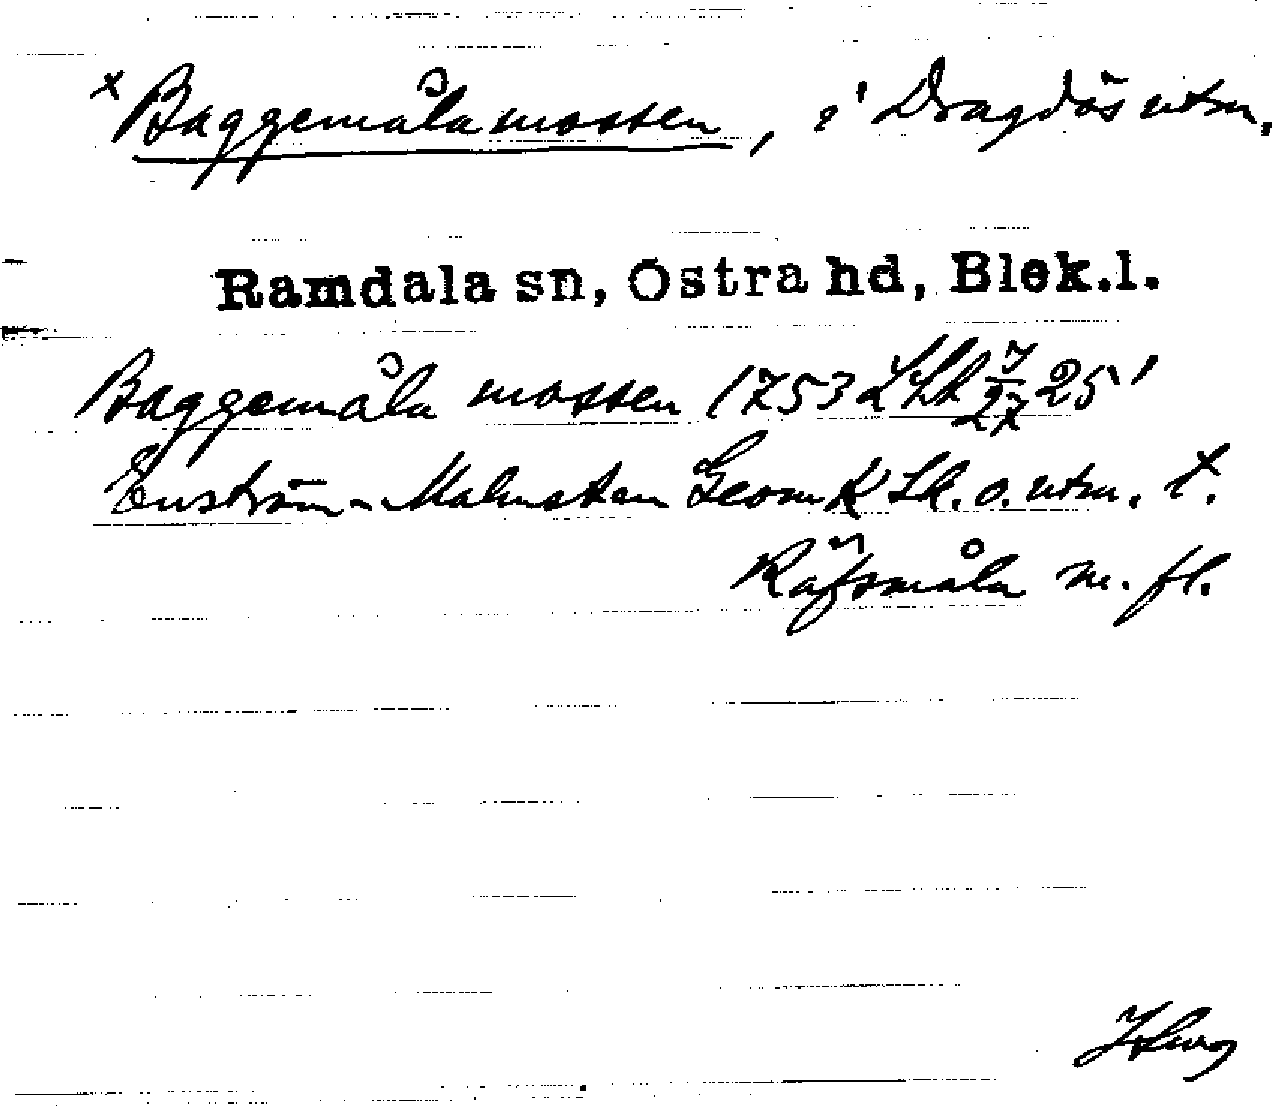 × Baggemåla mossen, i Dragdös utm.
Ramdala sn, Östra hd, Blek.l.
Baggemåla mossen 1753 LSA 7/27 25'
Enström - Malmsten Geom K Lk. o. utm. t.
Räfsmåla m. fl.